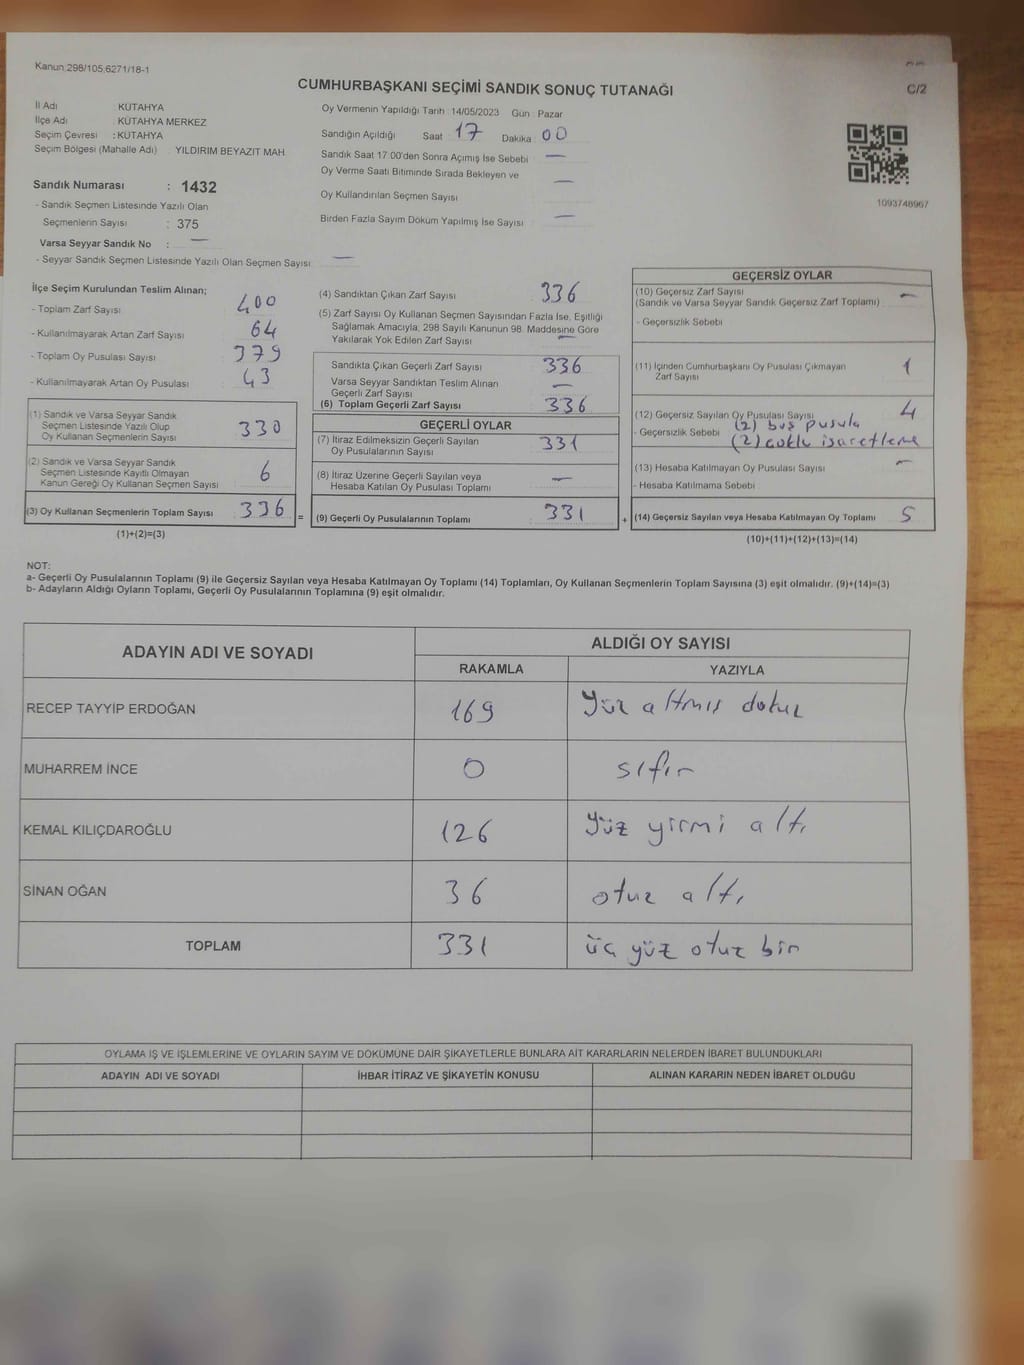 Kanun:298/105,6271/18-1
CUMHURBAŞKANI SEÇİMİ SANDIK SONUÇ TUTANAĞI
C/2
İl Adı : KÜTAHYA
İlçe Adı : KÜTAHYA MERKEZ
Seçim Çevresi : KÜTAHYA
Seçim Bölgesi (Mahalle Adı) : YILDIRIM BEYAZIT MAH.
Oy Vermenin Yapıldığı Tarih : 14/05/2023 Gün : Pazar
Sandığın Açıldığı Saat 17 Dakika 00
Sandık Saat 17:00'den Sonra Açımış İse Sebebi —
Oy Verme Saati Bitiminde Sırada Bekleyen ve
Oy Kullandırılan Seçmen Sayısı —
Birden Fazla Sayım Döküm Yapılmış İse Sayısı —
1093748967
Sandık Numarası : 1432
- Sandık Seçmen Listesinde Yazılı Olan
Seçmenlerin Sayısı : 375
Varsa Seyyar Sandık No : —
- Seyyar Sandık Seçmen Listesinde Yazılı Olan Seçmen Sayısı: —
İlçe Seçim Kurulundan Teslim Alınan;
- Toplam Zarf Sayısı : 400
- Kullanılmayarak Artan Zarf Sayısı : 64
- Toplam Oy Pusulası Sayısı : 379
- Kullanılmayarak Artan Oy Pusulası : 43
(1) Sandık ve Varsa Seyyar Sandık
Seçmen Listesinde Yazılı Olup
Oy Kullanan Seçmenlerin Sayısı 330
(2) Sandık ve Varsa Seyyar Sandık
Seçmen Listesinde Kayıtlı Olmayan
Kanun Gereği Oy Kullanan Seçmen Sayısı 6
(3) Oy Kullanan Seçmenlerin Toplam Sayısı 336
(1)+(2)=(3)
(4) Sandıktan Çıkan Zarf Sayısı 336
(5) Zarf Sayısı Oy Kullanan Seçmen Sayısından Fazla İse, Eşitliği
Sağlamak Amacıyla, 298 Sayılı Kanunun 98. Maddesine Göre
Yakılarak Yok Edilen Zarf Sayısı —
Sandıkta Çıkan Geçerli Zarf Sayısı 336
Varsa Seyyar Sandıktan Teslim Alınan
Geçerli Zarf Sayısı —
(6) Toplam Geçerli Zarf Sayısı 336
GEÇERLİ OYLAR
(7) İtiraz Edilmeksizin Geçerli Sayılan
Oy Pusulalarının Sayısı 331
(8) İtiraz Üzerine Geçerli Sayılan veya
Hesaba Katılan Oy Pusulası Toplamı —
= (9) Geçerli Oy Pusulalarının Toplamı 331 +
GEÇERSİZ OYLAR
(10) Geçersiz Zarf Sayısı
(Sandık ve Varsa Seyyar Sandık Geçersiz Zarf Toplamı) —
- Geçersizlik Sebebi
(11) İçinden Cumhurbaşkanı Oy Pusulası Çıkmayan
Zarf Sayısı 1
(12) Geçersiz Sayılan Oy Pusulası Sayısı 4
(2) boş pusula
- Geçersizlik Sebebi (2) çoklu işaretleme
(13) Hesaba Katılmayan Oy Pusulası Sayısı —
- Hesaba Katılmama Sebebi
(14) Geçersiz Sayılan veya Hesaba Katılmayan Oy Toplamı 5
(10)+(11)+(12)+(13)=(14)
NOT:
a- Geçerli Oy Pusulalarının Toplamı (9) ile Geçersiz Sayılan veya Hesaba Katılmayan Oy Toplamı (14) Toplamları, Oy Kullanan Seçmenlerin Toplam Sayısına (3) eşit olmalıdır. (9)+(14)=(3)
b- Adayların Aldığı Oyların Toplamı, Geçerli Oy Pusulalarının Toplamına (9) eşit olmalıdır.
ADAYIN ADI VE SOYADI
ALDIĞI OY SAYISI
RAKAMLA YAZIYLA
RECEP TAYYİP ERDOĞAN 169 Yüz altmış dokuz
MUHARREM İNCE 0 sıfır
KEMAL KILIÇDAROĞLU 126 Yüz yirmi altı
SİNAN OĞAN 36 otuz altı
TOPLAM 331 üç yüz otuz bir
OYLAMA İŞ VE İŞLEMLERİNE VE OYLARIN SAYIM VE DÖKÜMÜNE DAİR ŞİKAYETLERLE BUNLARA AİT KARARLARIN NELERDEN İBARET BULUNDUKLARI
ADAYIN ADI VE SOYADI İHBAR İTİRAZ VE ŞİKAYETİN KONUSU ALINAN KARARIN NEDEN İBARET OLDUĞU